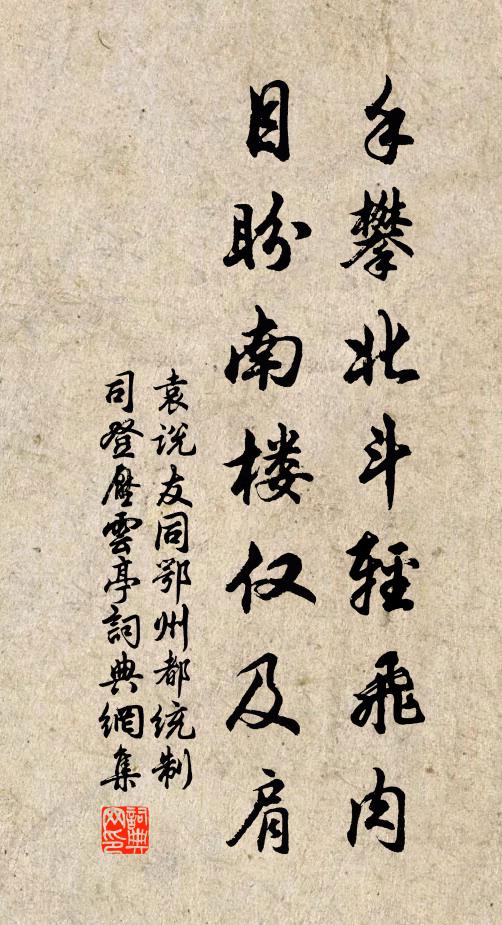 手攀北斗輕飛肉
目盼南楼仅及肩
袁说友同鄂州都统制
司登壓雲亭詞典網集
詞典
网印